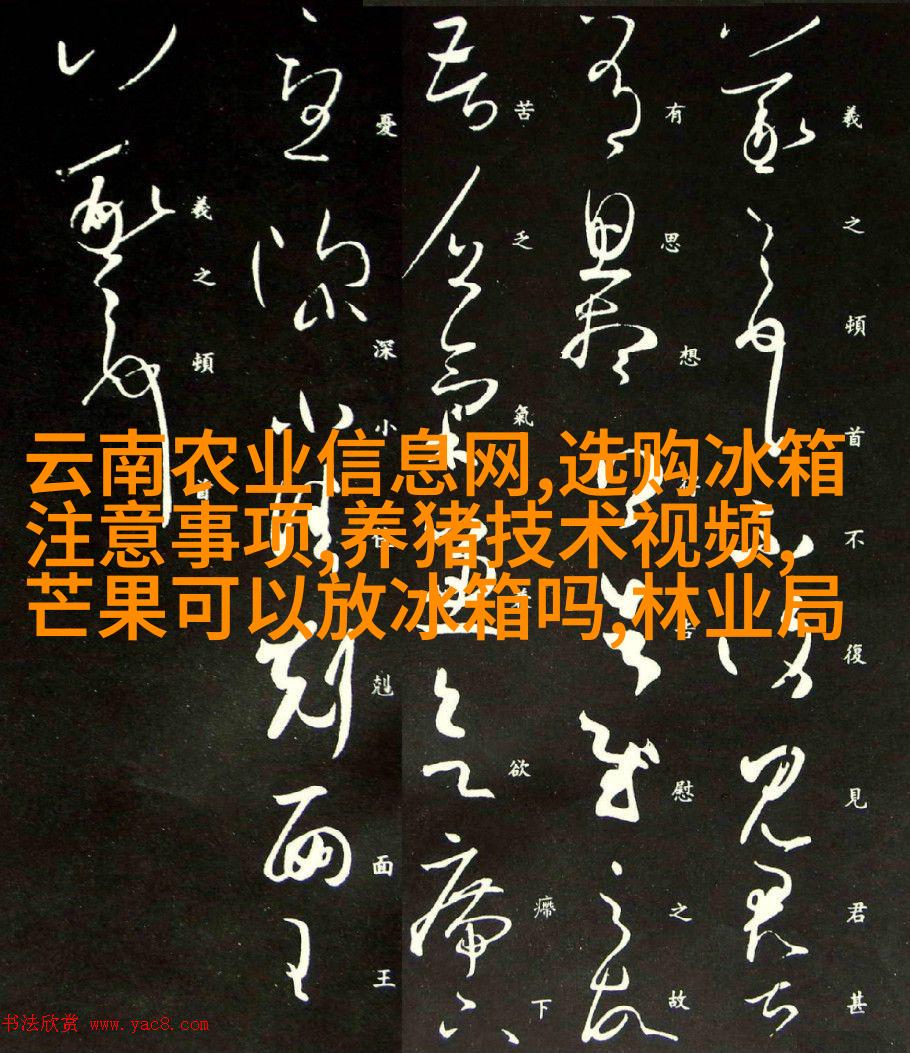 羲之頓首不復見君甚
有思想得告慰之故
苦乏氣欲下
憂深小佳剋面王
羲之頓首
云南农业信息网,选购冰箱
注意事项,养猪技术视频,
芒果可以放冰箱吗,林业局
书法欣赏 www.yac8.com